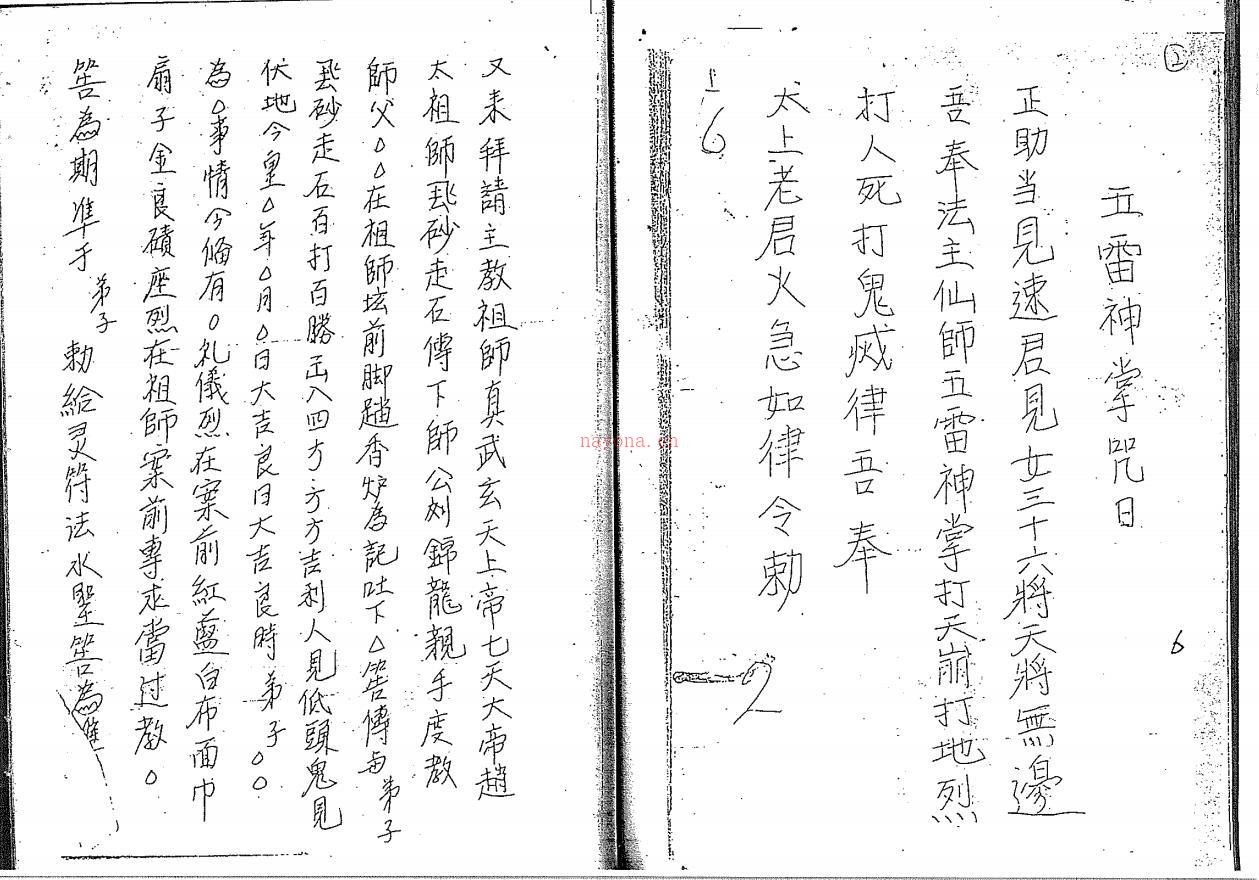 ②
五雷神掌咒日
正助当見速君見女三十六將天將無邊
吾奉法主仙師五雷神掌打天崩打地烈
打人死打鬼烕律吾奉
太上老君火急如律令勅
6
6
2
又来拜請主教祖師真武玄天上帝七天大帝趙
太祖師飛砂走石傳下師公刘錦龍親手度教
師父△△在祖師坛前脚踏香炉為記吐下△筶傳与弟子
飛砂走石百打百勝出入四方方方吉利人見低頭鬼見
伏地今皇△年△月△日大吉良日大吉良時弟子△△
為△事情今备有△礼儀烈在案前紅藍白布面巾
扇子金良磧座烈在祖師案前專求當过教△
筶為期准于弟子勅給灵符法水聖筶為准
nayona.cn